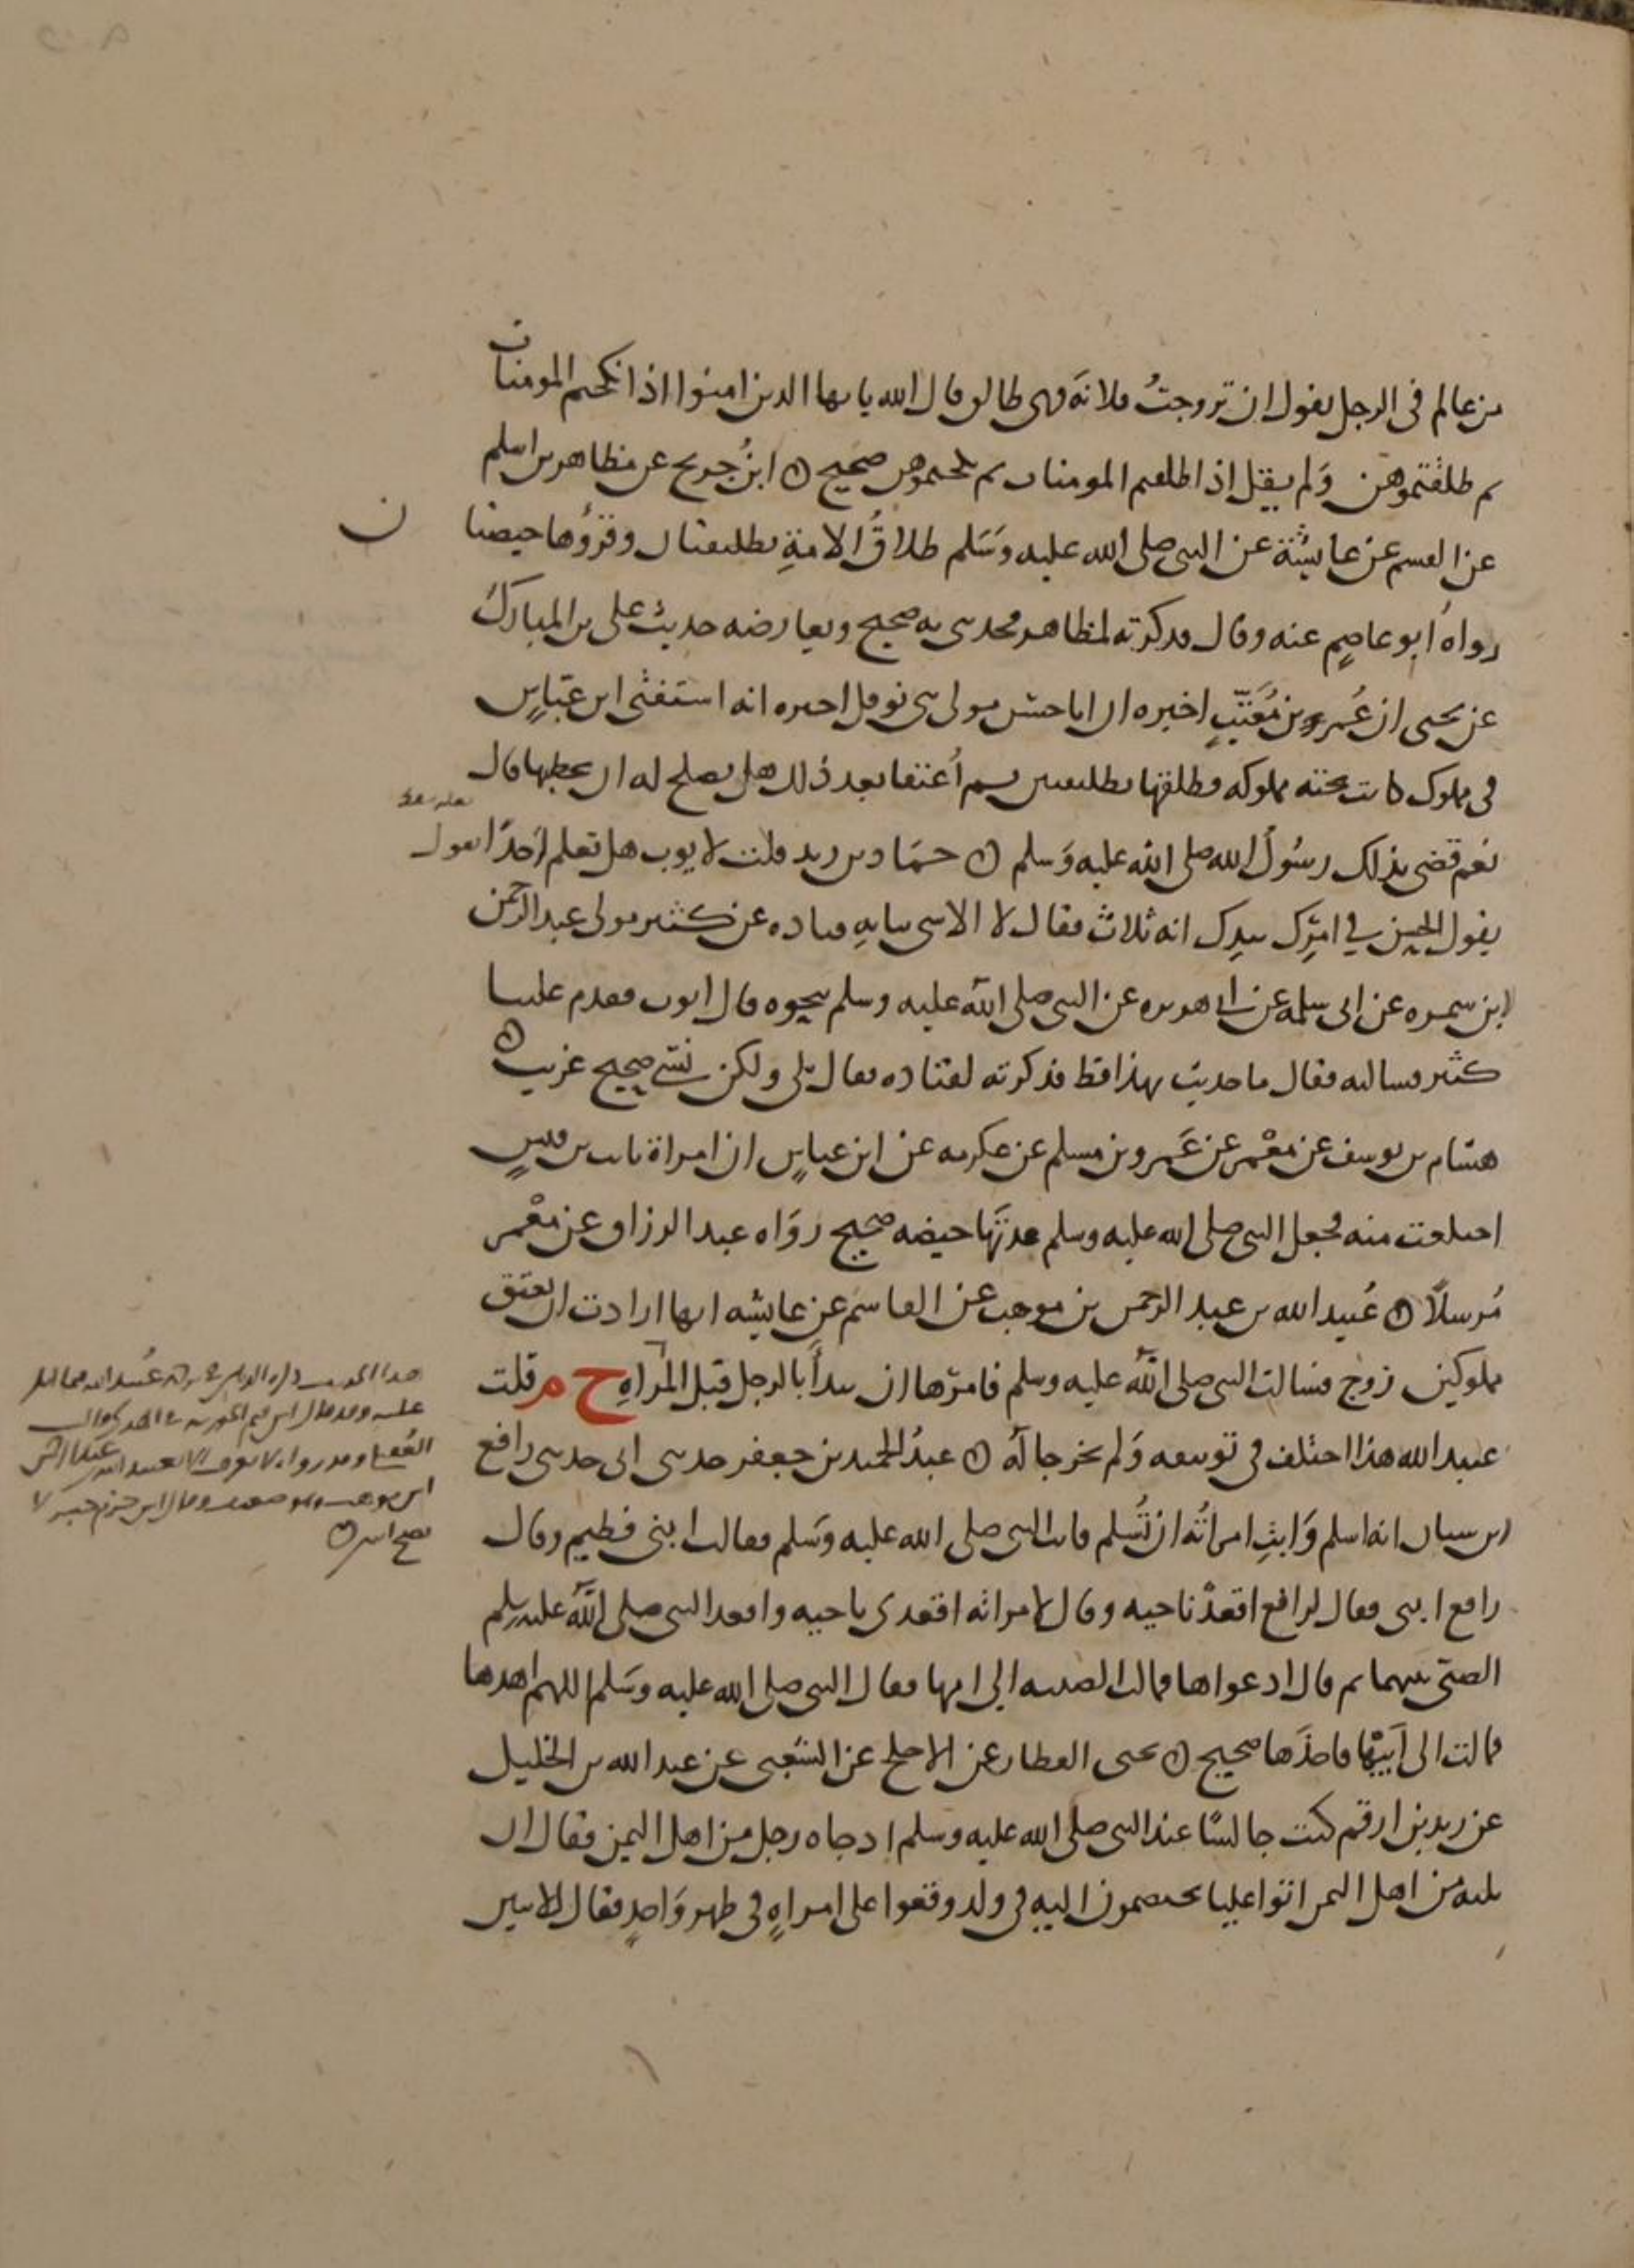 من عالم في الرجل يقول ان تزوجتُ فلانة فهي طالق قال الله يا ايها الذين امنوا اذا نكحتم المومنات
ثم طلقتموهن وَلم يقل اذا طلقتم المومنات ثم نكحتموهن صحيح ابنُ جريج عن مظاهر بن اسلم
عن القسم عن عايشة عن النبي صلى الله عليه وسَلم طلاقُ الامةِ تطليقتان وقرؤها حيضتان
رواهُ ابو عاصمٍ عنه وقال فذكرته لمظاهر فحدثني به صحيح ويعارضه حديث علي بن المبارك
عن يحيى ان عُمر بن مُعَتِّبٍ اخبره ان ابا حسن مولى بني نوفل اخبره انه استفتى ابن عبّاسٍ
في مملوك كانت تحته مملوكه فطلقها تطليقتين ثم اُعتقا بعد ذلك هل يصلح له ان يخطبها قال
نعم قضى بذلك رسُولُ الله صلى الله عليه وَسلم حمَاد بن زيد قلت لايوب هل تعلم اَحدًا يقول
يقول الحسن في امرُكِ بيدِك انه ثلاث فقال لا الا شي ثنا بهِ قتاده عن كثير مولى عبد الرحمن
ابن سمره عن ابي سلمه عن ابي هريره عن النبي صلى الله عليه وسلم بنحوه قال ايوب فقدم علينا
كثير فسالته فقال ما حدثت بهذا قط فذكرته لقتاده فقال بلى ولكن نسي صحيح غريب
هشام بن يوسف عن مَعْمر عن عَمرو بن مسلم عن عكرمه عن ابن عباسٍ ان امراة ثابت بن قيسٍ
اختلعت منه فجعل النبي صلى الله عليه وسلم عدتَها حيضه صحيح روَاه عبد الرزاق عن مَعْمر
مُرسلًا عُبيد الله بن عبد الرحمن بن موهب عن القاسم عن عايشه انها ارادت ان تعتق
مملوكين زوج فسالت النبي صلى الله عليه وسلم فامرها ان تبدأ بالرجل قبل المراهِ ح م قلت
عبيد الله هذا اختلف في توسعه وَلم يخرجا لهُ عبدُ الحميد بن جعفر حدثني ابي حدثني رافع
ابن سنان انه اسلم وَابتِ امراتُه ان تُسلم فاتت النبي صلى الله عليه وسَلم فقالت ابنتي فطيم وقال
رافع ابنتي فقال لرافع اقعدْ ناحيه وقال لامراته اقعدي ناحيه واقعد النبي صلى الله عليه وسلم
الصبي بينهما ثم قال ادعواها فمالت الصبيه الى امها فقال النبي صلى الله عليه وسَلم اللهم اهدها
فمالت الى اَبيْها فاخذَها صحيح يحيى القطان عن الاجلح عن الشعبي عن عبد الله بن الخليل
عن زيد بن ارقم كنت جالسًا عند النبي صلى الله عليه وسلم اذ جاه رجل من اهل اليمن فقال ان
ثلثه من اهل اليمن اتوا عليا يختصمون اليه في ولد وقعوا على امراهٍ في طهر وَاحدٍ فقال لاثنين
هذا الحديث
عليه وقد قال ابن
وقد رواه لا يعرف الا لعبيد الله بن عبد الرحمن
ابن موهب وهو ضعيف وقال ابن حزم خبر لا
يصح